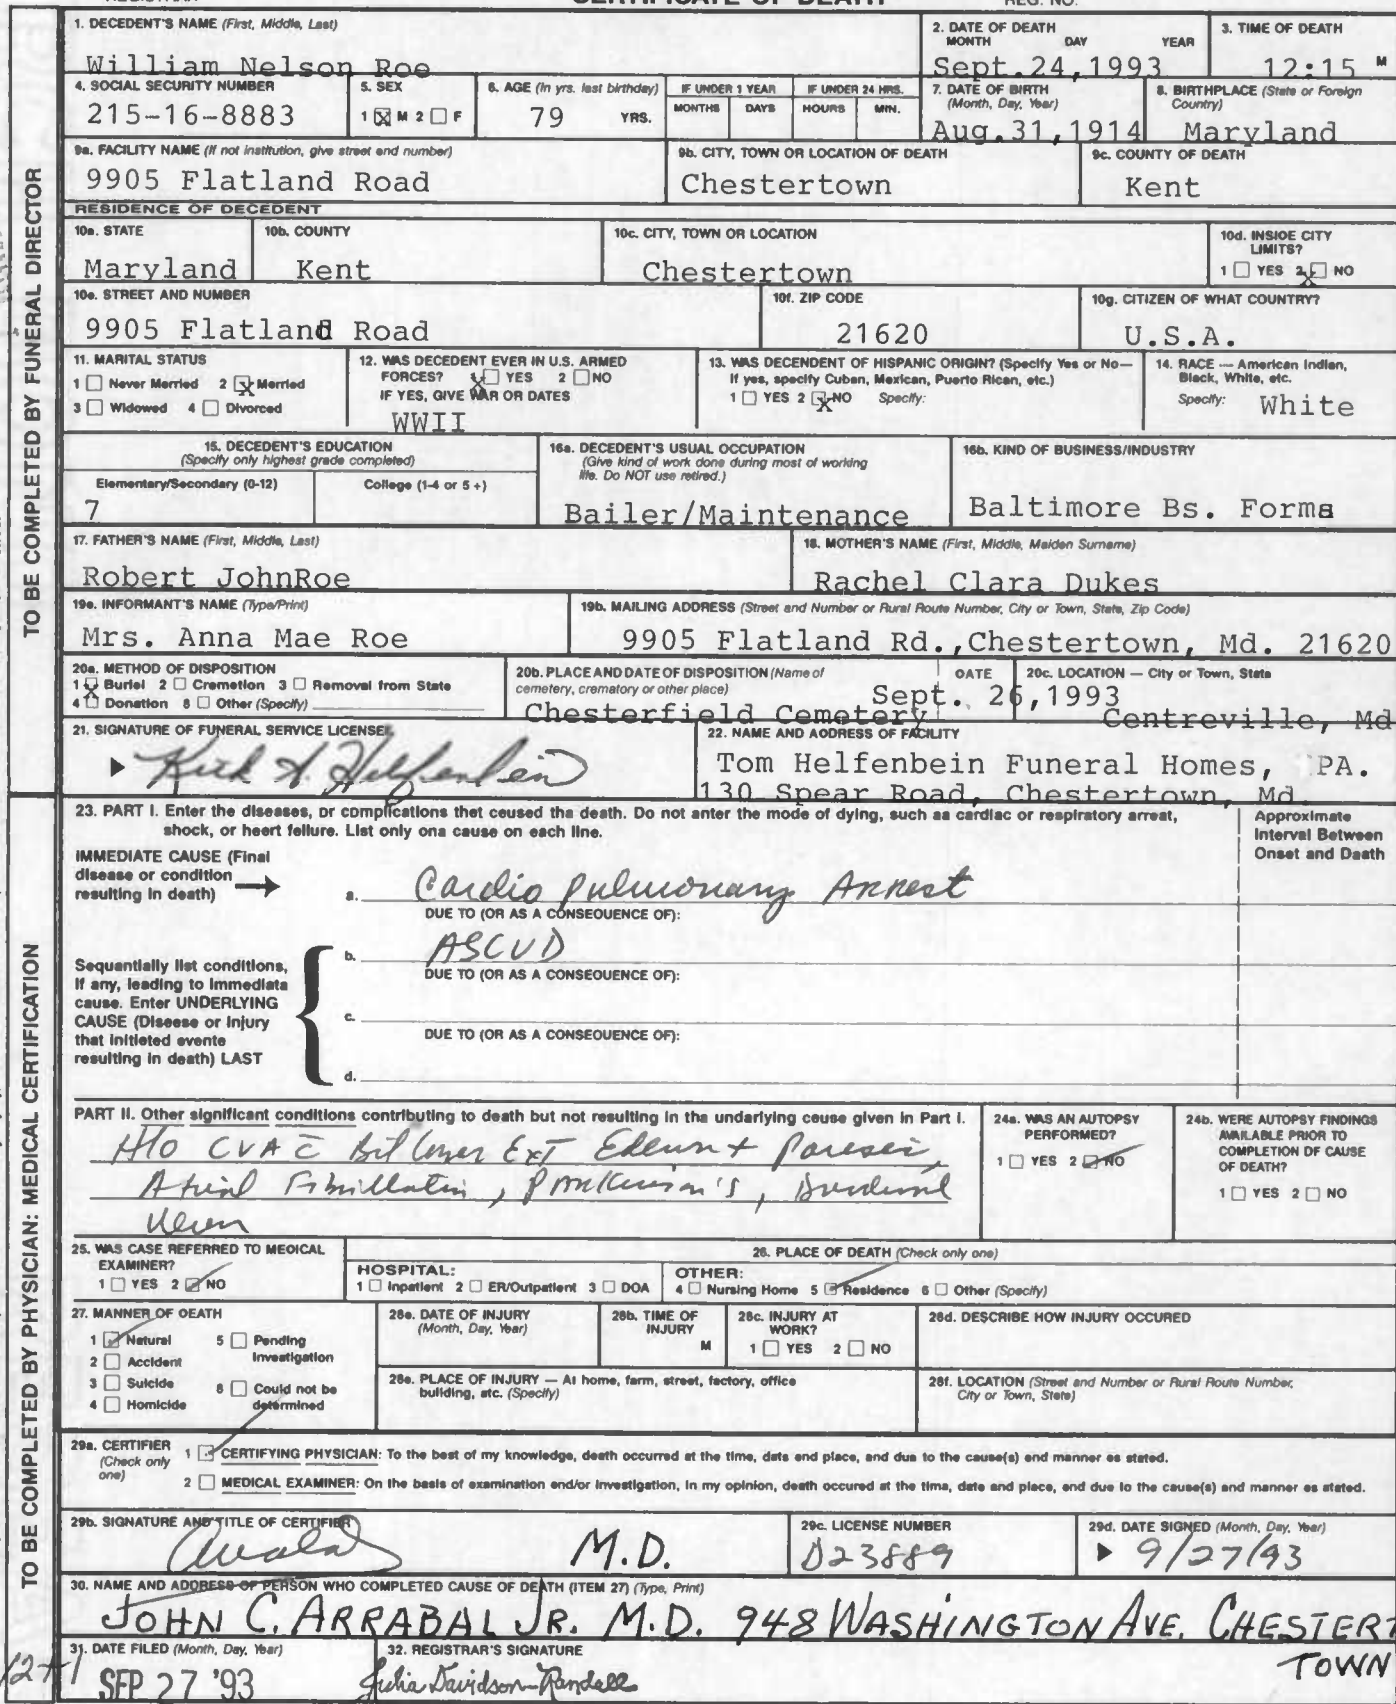 CERTIFICATE OF DEATH
REG. NO.
TO BE COMPLETED BY FUNERAL DIRECTOR
1. DECEDENT'S NAME (First, Middle, Last)
William Nelson Roe
2. DATE OF DEATH
MONTH DAY YEAR
Sept.24,1993
3. TIME OF DEATH
12:15 M
4. SOCIAL SECURITY NUMBER
215-16-8883
5. SEX
1 ☒ M 2 ☐ F
6. AGE (In yrs. last birthday)
79 YRS.
IF UNDER 1 YEAR
MONTHS DAYS
IF UNDER 24 HRS.
HOURS MIN.
7. DATE OF BIRTH
(Month, Day, Year)
Aug.31,1914
8. BIRTHPLACE (State or Foreign
Country)
Maryland
9a. FACILITY NAME (If not institution, give street and number)
9905 Flatland Road
9b. CITY, TOWN OR LOCATION OF DEATH
Chestertown
9c. COUNTY OF DEATH
Kent
RESIDENCE OF DECEDENT
10a. STATE
Maryland
10b. COUNTY
Kent
10c. CITY, TOWN OR LOCATION
Chestertown
10d. INSIDE CITY
LIMITS?
1 ☐ YES 2 ☒ NO
10e. STREET AND NUMBER
9905 Flatland Road
10f. ZIP CODE
21620
10g. CITIZEN OF WHAT COUNTRY?
U.S.A.
11. MARITAL STATUS
1 ☐ Never Married 2 ☒ Married
3 ☐ Widowed 4 ☐ Divorced
12. WAS DECEDENT EVER IN U.S. ARMED
FORCES? 1 ☒ YES 2 ☐ NO
IF YES, GIVE WAR OR DATES
WWII
13. WAS DECENDENT OF HISPANIC ORIGIN? (Specify Yes or No—
If yes, specify Cuban, Mexican, Puerto Rican, etc.)
1 ☐ YES 2 ☒ NO Specify:
14. RACE — American Indian,
Black, White, etc.
Specify: White
15. DECEDENT'S EDUCATION
(Specify only highest grade completed)
Elementary/Secondary (0-12)
7
College (1-4 or 5 +)
16a. DECEDENT'S USUAL OCCUPATION
(Give kind of work done during most of working
life. Do NOT use retired.)
Bailer/Maintenance
16b. KIND OF BUSINESS/INDUSTRY
Baltimore Bs. Forms
17. FATHER'S NAME (First, Middle, Last)
Robert JohnRoe
18. MOTHER'S NAME (First, Middle, Maiden Surname)
Rachel Clara Dukes
19a. INFORMANT'S NAME (Type/Print)
Mrs. Anna Mae Roe
19b. MAILING ADDRESS (Street and Number or Rural Route Number, City or Town, State, Zip Code)
9905 Flatland Rd.,Chestertown, Md. 21620
20a. METHOD OF DISPOSITION
1 ☒ Burial 2 ☐ Cremation 3 ☐ Removal from State
4 ☐ Donation 8 ☐ Other (Specify)
20b. PLACE AND DATE OF DISPOSITION (Name of
cemetery, crematory or other place)
Chesterfield Cemetery
DATE
Sept. 26,1993
20c. LOCATION — City or Town, State
Centreville, Md
21. SIGNATURE OF FUNERAL SERVICE LICENSEE
Kirk A. Helfenbein
22. NAME AND ADDRESS OF FACILITY
Tom Helfenbein Funeral Homes, PA.
130 Spear Road, Chestertown, Md.
TO BE COMPLETED BY PHYSICIAN: MEDICAL CERTIFICATION
23. PART I. Enter the diseases, or complications that caused the death. Do not enter the mode of dying, such as cardiac or respiratory arrest,
shock, or heart failure. List only one cause on each line.
Approximate
Interval Between
Onset and Death
IMMEDIATE CAUSE (Final
disease or condition
resulting in death)
a. Cardio Pulmonary Arrest
DUE TO (OR AS A CONSEQUENCE OF):
b. ASCVD
DUE TO (OR AS A CONSEQUENCE OF):
Sequentially list conditions,
if any, leading to immediate
cause. Enter UNDERLYING
CAUSE (Disease or injury
that initiated events
resulting in death) LAST
c.
DUE TO (OR AS A CONSEQUENCE OF):
d.
PART II. Other significant conditions contributing to death but not resulting in the underlying cause given in Part I.
H/o CVA c̄ Bil lower Ext Edema + Paresis,
Atrial Fibrillation, Parkinson's, Duodenal
Ulcer
24a. WAS AN AUTOPSY
PERFORMED?
1 ☐ YES 2 ☑ NO
24b. WERE AUTOPSY FINDINGS
AVAILABLE PRIOR TO
COMPLETION OF CAUSE
OF DEATH?
1 ☐ YES 2 ☐ NO
25. WAS CASE REFERRED TO MEDICAL
EXAMINER?
1 ☐ YES 2 ☑ NO
26. PLACE OF DEATH (Check only one)
HOSPITAL:
1 ☐ Inpatient 2 ☐ ER/Outpatient 3 ☐ DOA
OTHER:
4 ☐ Nursing Home 5 ☑ Residence 6 ☐ Other (Specify)
27. MANNER OF DEATH
1 ☑ Natural 5 ☐ Pending
Investigation
2 ☐ Accident
3 ☐ Suicide 8 ☐ Could not be
4 ☐ Homicide determined
28a. DATE OF INJURY
(Month, Day, Year)
28b. TIME OF
INJURY
M
28c. INJURY AT
WORK?
1 ☐ YES 2 ☐ NO
28d. DESCRIBE HOW INJURY OCCURED
28e. PLACE OF INJURY — At home, farm, street, factory, office
building, etc. (Specify)
28f. LOCATION (Street and Number or Rural Route Number,
City or Town, State)
29a. CERTIFIER
(Check only
one)
1 ☑ CERTIFYING PHYSICIAN: To the best of my knowledge, death occurred at the time, date and place, and due to the cause(s) and manner as stated.
2 ☐ MEDICAL EXAMINER: On the basis of examination and/or investigation, in my opinion, death occured at the time, date and place, and due to the cause(s) and manner as stated.
29b. SIGNATURE AND TITLE OF CERTIFIER
M.D.
29c. LICENSE NUMBER
D23889
29d. DATE SIGNED (Month, Day, Year)
9/27/93
30. NAME AND ADDRESS OF PERSON WHO COMPLETED CAUSE OF DEATH (ITEM 27) (Type, Print)
JOHN C. ARRABAL JR. M.D. 948 WASHINGTON AVE. CHESTER
TOWN
31. DATE FILED (Month, Day, Year)
SEP 27 '93
32. REGISTRAR'S SIGNATURE
Julia Davidson-Randall